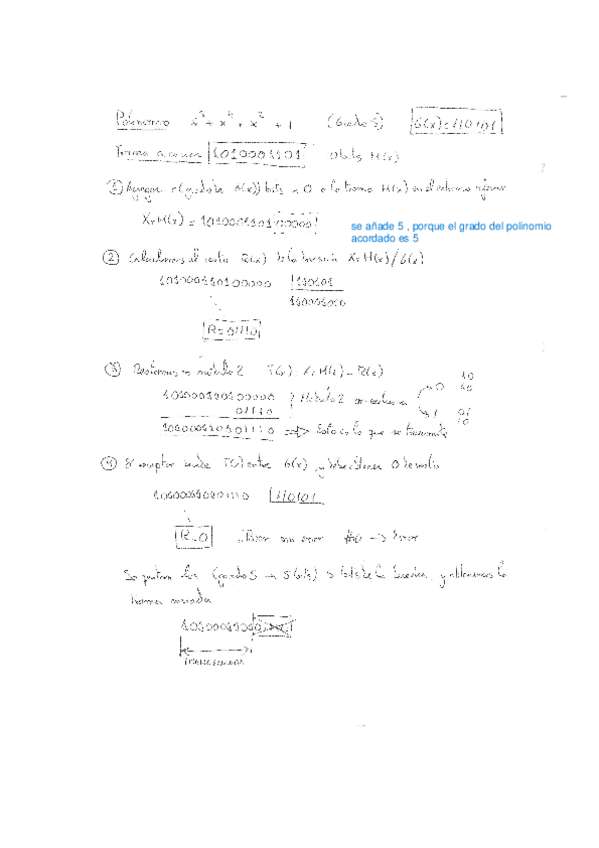 Polinomio x⁵ + x⁴ + x² + 1 (Grado 5) G(x) = 110101
Trama a enviar 1010001101 10 bits M(x)
① r (grado de G(x)) bits a 0 a la trama M(x) en el extremo
XrM(x) = 101000110100000
se añade 5 , porque el grado del polinomio
acordado es 5
② Calculamos el resto R(x) de la división XrM(x)/G(x)
101000110100000 110101
R = 01110
③ Restamos en módulo 2 T(x) = XrM(x) - R(x)
101000110100000 Módulo 2
01110
101000110101110 => Esto es lo que se transmite
④ El receptor divide T(x) entre G(x) y debe obtener 0 de resto
110101
R=0 Bien, sin error ≠0 -> Error
Se quitan los (grado 5 -> 5 bits) 5 bits de la y obtenemos la
trama enviada